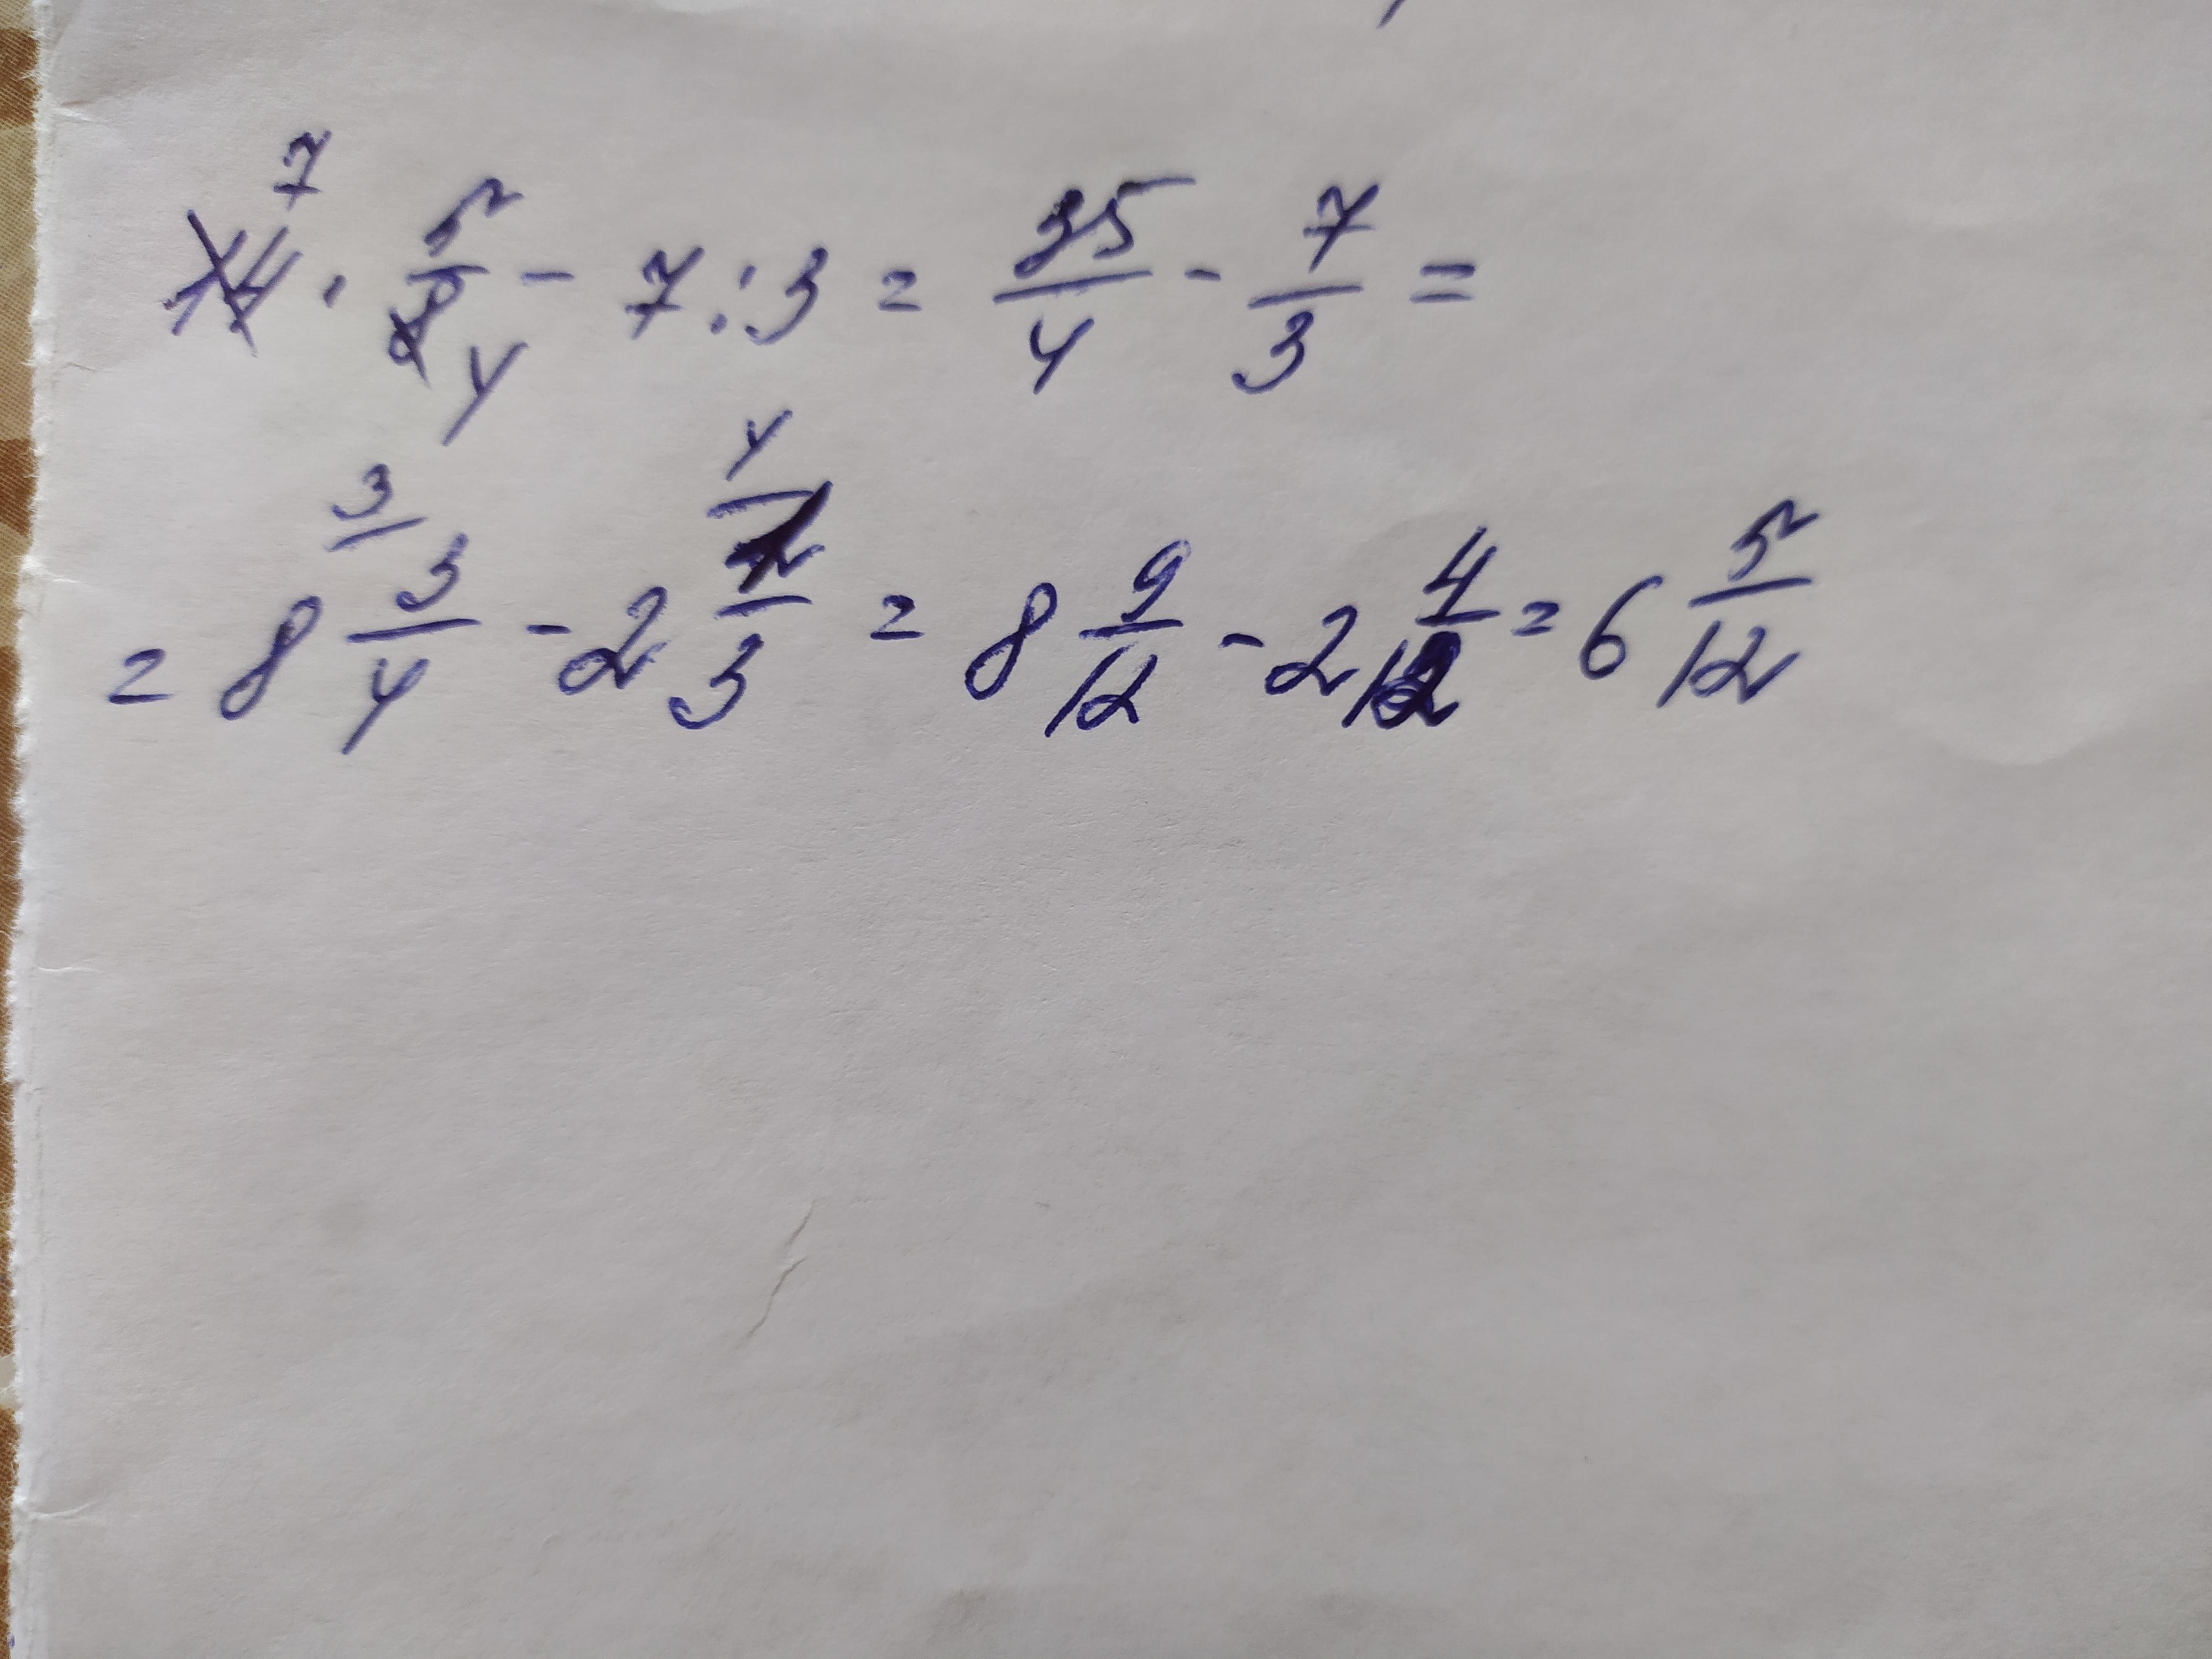 14 7 · 5/8 4 - 7 : 3 = 35/4 - 7/3 =
= 8 3/4 3/ - 2 1/3 4/ = 8 9/12 - 2 4/12 = 6 5/12